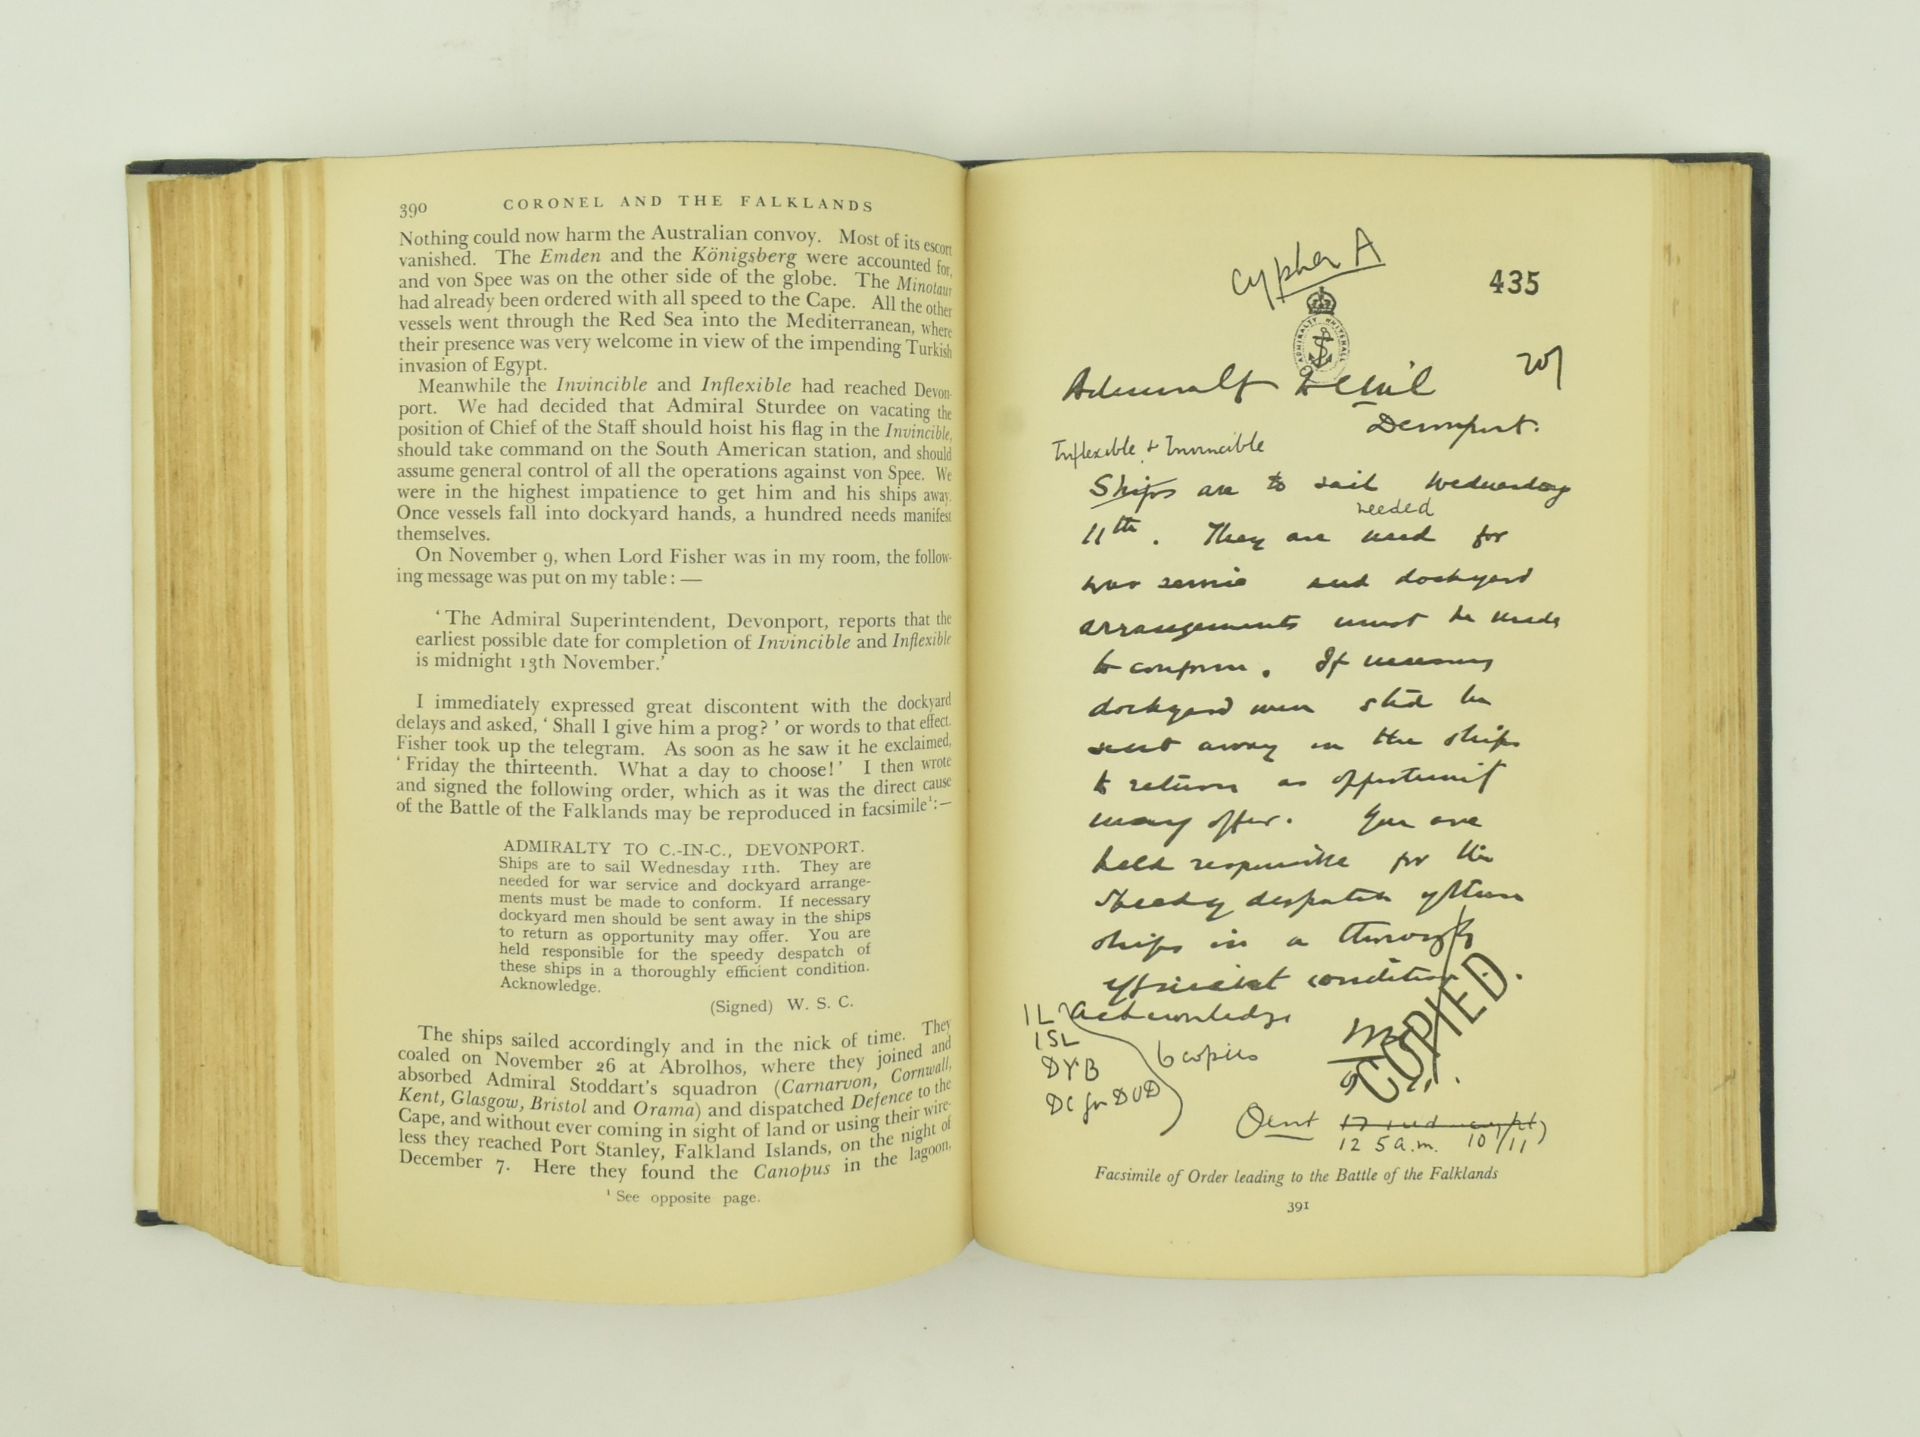 390 CORONEL AND THE FALKLANDS
Nothing could now harm the Australian convoy. Most of its escort
vanished. The Emden and the Königsberg were accounted for,
and von Spee was on the other side of the globe. The Minotaur
had already been ordered with all speed to the Cape. All the other
vessels went through the Red Sea into the Mediterranean, where
their presence was very welcome in view of the impending Turkish
invasion of Egypt.
Meanwhile the Invincible and Inflexible had reached Devon-
port. We had decided that Admiral Sturdee on vacating the
position of Chief of the Staff should hoist his flag in the Invincible,
should take command on the South American station, and should
assume general control of all the operations against von Spee. We
were in the highest impatience to get him and his ships away.
Once vessels fall into dockyard hands, a hundred needs manifest
themselves.
On November 9, when Lord Fisher was in my room, the follow-
ing message was put on my table: —
‘ The Admiral Superintendent, Devonport, reports that the
earliest possible date for completion of Invincible and Inflexible
is midnight 13th November.’
I immediately expressed great discontent with the dockyard
delays and asked, ‘ Shall I give him a prog? ’ or words to that effect.
Fisher took up the telegram. As soon as he saw it he exclaimed,
‘ Friday the thirteenth. What a day to choose! ’ I then wrote
and signed the following order, which as it was the direct cause
of the Battle of the Falklands may be reproduced in facsimile¹:—
ADMIRALTY TO C.-IN-C., DEVONPORT.
Ships are to sail Wednesday 11th. They are
needed for war service and dockyard arrange-
ments must be made to conform. If necessary
dockyard men should be sent away in the ships
to return as opportunity may offer. You are
held responsible for the speedy despatch of
these ships in a thoroughly efficient condition.
Acknowledge.
(Signed) W. S. C.
The ships sailed accordingly and in the nick of time. They
coaled on November 26 at Abrolhos, where they joined and
absorbed Admiral Stoddart's squadron (Carnarvon, Cornwall,
Kent, Glasgow, Bristol and Orama) and dispatched Defence to the
Cape, and without ever coming in sight of land or using their wire-
less they reached Port Stanley, Falkland Islands, on the night of
December 7. Here they found the Canopus in the lagoon.
¹ See opposite page.
Cypher A
435
ADMIRALTY WHITEHALL
Admiralty to
Devonport.
Inflexible + Invincible
Ships are to sail Wednesday
needed
11th. They are used for
war service and dockyard
arrangements must be made
to conform. If necessary
dockyard men shd be
sent away in the ships
to return as opportunity
may offer. You are
held responsible for the
speedy despatch of these
ships in a thoroughly
efficient condition.
Acknowledge
COPIED.
1L
1SL
DYB
DC for DOD
6 copies
Sent
12 5 a.m. 10/11
Facsimile of Order leading to the Battle of the Falklands
391